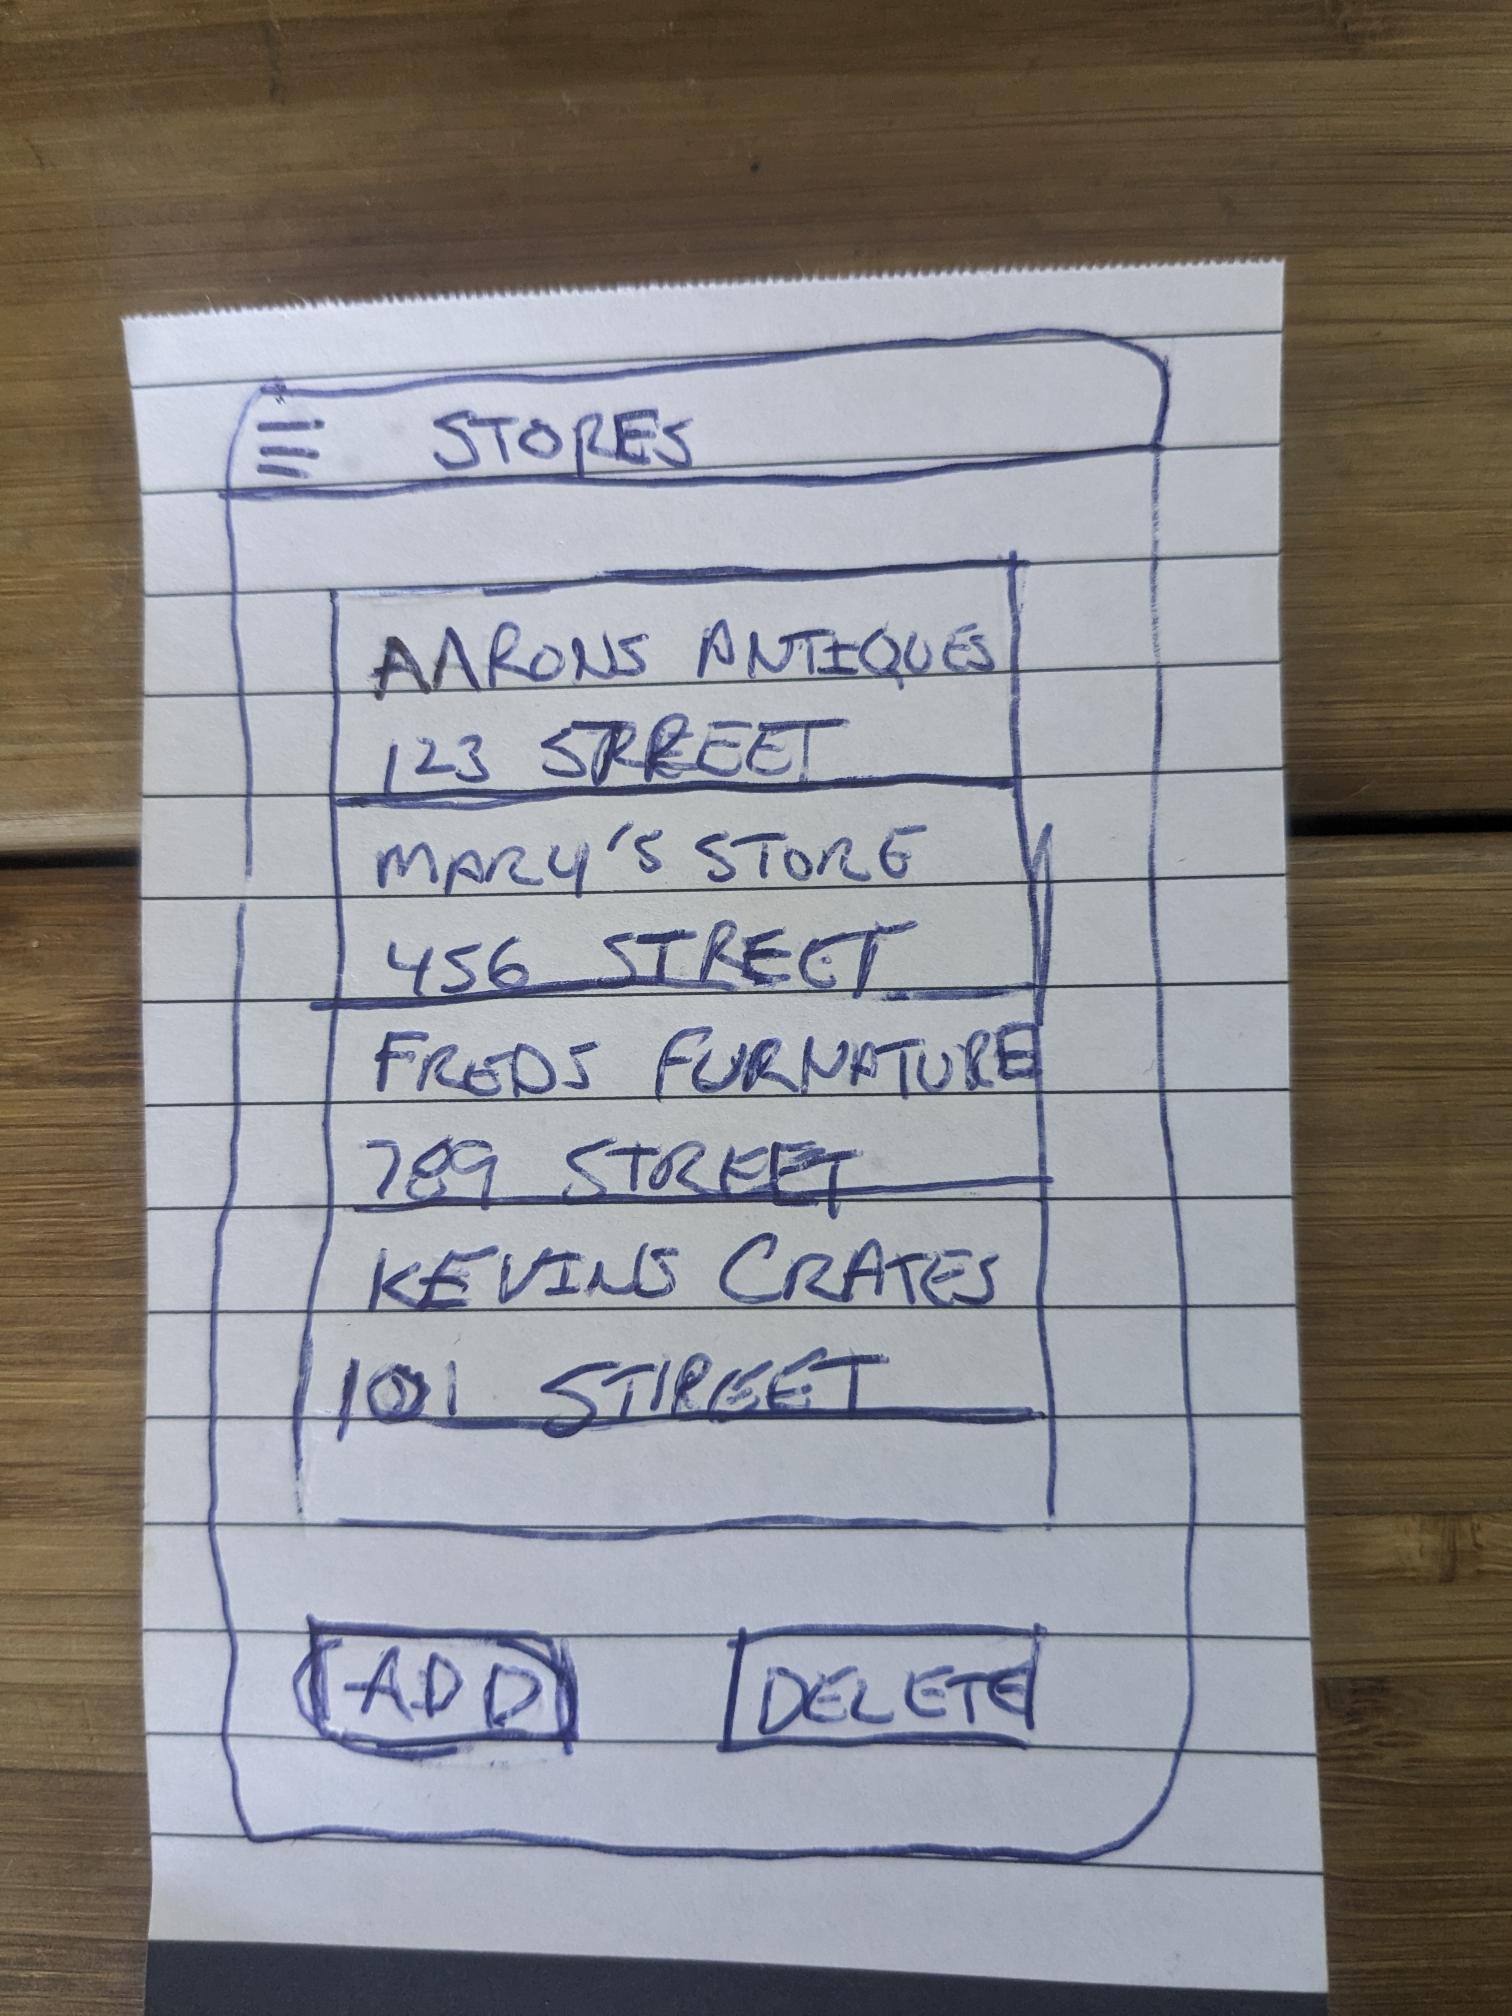 STORES
AARONS ANTIQUES
123 STREET
MARY'S STORE
456 STREET
FREDS FURNATURE
789 STREET
KEVINS CRATES
101 STREET
ADD
DELETE